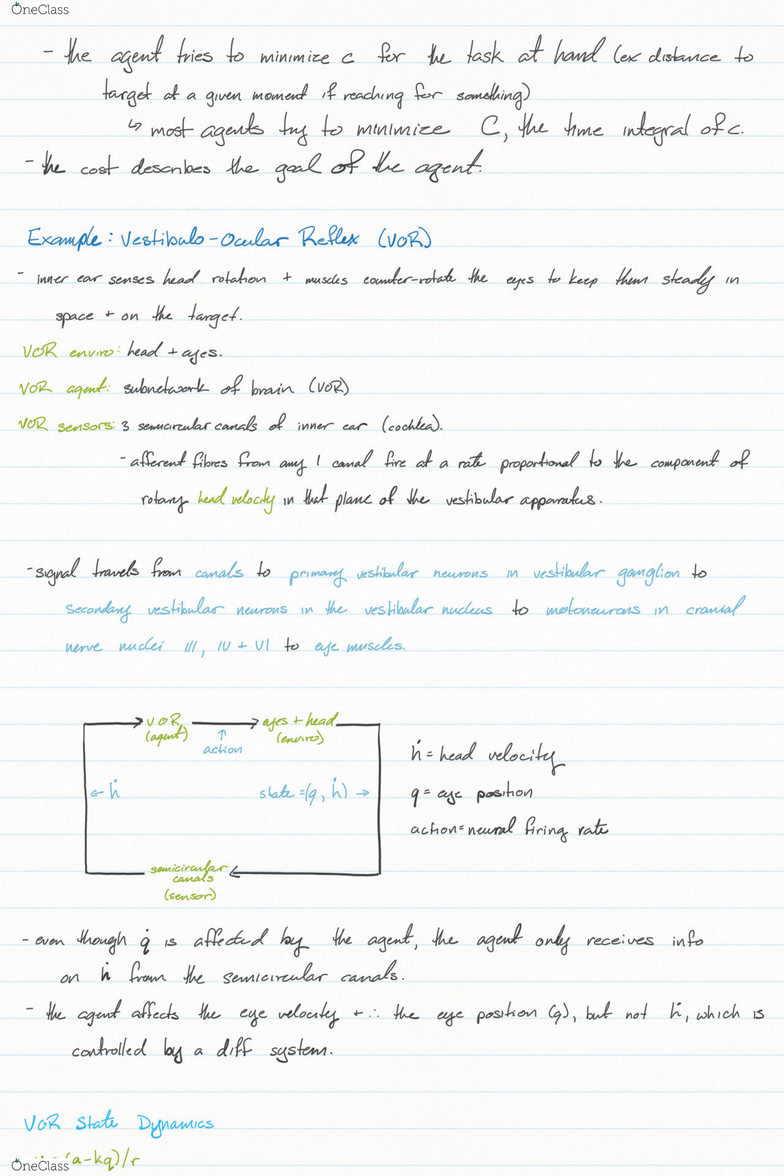 OneClass
- the agent tries to minimize c for the task at hand (ex distance to
target at a given moment if reaching for something)
↳ most agents try to minimize C, the time integral of c.
- the cost describes the goal of the agent.
Example: Vestibulo-Ocular Reflex (VOR)
- inner ear senses head rotation + muscles counter-rotate the eyes to keep them steady in
space + on the target.
VOR enviro: head + eyes.
VOR agent: subnetwork of brain (VOR)
VOR sensors: 3 semicircular canals of inner ear (cochlea).
- afferent fibres from any 1 canal fire at a rate proportional to the component of
rotary head velocity in that plane of the vestibular apparatus.
- signal travels from canals to primary vestibular neurons in vestibular ganglion to
secondary vestibular neurons in the vestibular nucleus to motoneurons in cranial
nerve nuclei III, IV + VI to eye muscles.
VOR → eyes + head
(agent) ↑ (enviro)
action
ḣ = head velocity
← ḣ state = (q, ḣ) →
q = eye position
action = neural firing rate
semicircular
canals
(sensor)
- even though q̇ is affected by the agent, the agent only receives info
on ḣ from the semicircular canals.
- the agent affects the eye velocity + ∴ the eye position (q), but not ḣ, which is
controlled by a diff system.
VOR State Dynamics
(a-kq)/r
OneClass